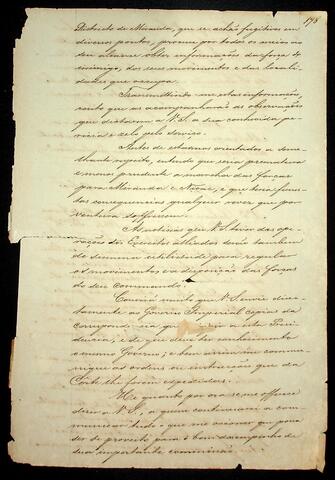 178
Districto de Miranda, que se achão fugitivos em
diversos pontos, procure por todos os meios ao
seu alcance obter informações da força do
inimigo, dos seus movimentos e das locali-
dades que occupa.
Transmittindo-me estas informações,
conto que as acompanhará das observações
que dictarem a V. S. a sua conhecida pe-
ricia e zelo pelo serviço.
Antes de estarmos orientados a seme-
lhante respeito, entendo que seria prematura
e menos prudente a marcha das forças
para Miranda e Nioac, e que teria funes-
tas consequencias qualquer revez que por-
ventura soffressem.
As noticias que V. S. tiver das ope-
rações dos Exercitos alliados serão tambem
de summa utilidade para regular
os movimentos e a disposição das forças
do seu commando.
Convirá muito que V. S. envie direc-
tamente ao Governo Imperial copias da
correspondencia que a esta Presi-
dencia, e de que deve ter conhecimento
o mesmo Governo; e bem assim me commu-
nique as ordens ou instrucções que da
Corte lhe forem expedidas.
He quanto por ora se me offerece
dizer a V. S., a quem continuarei a com-
municar tudo o que me occorrer que possa
ser de proveito para o bom desempenho de
sua importante commissão.